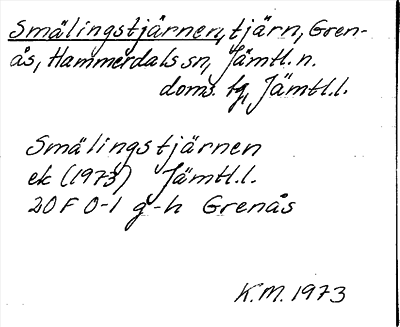 Smälingstjärnen, tjärn, Gren-
ås, Hammerdals sn, Jämtl. n.
doms. fg, Jämtl.l.
Smälingstjärnen
ek (1973) Jämtl.l.
20F 0-1 g-h Grenås
K.M. 1973